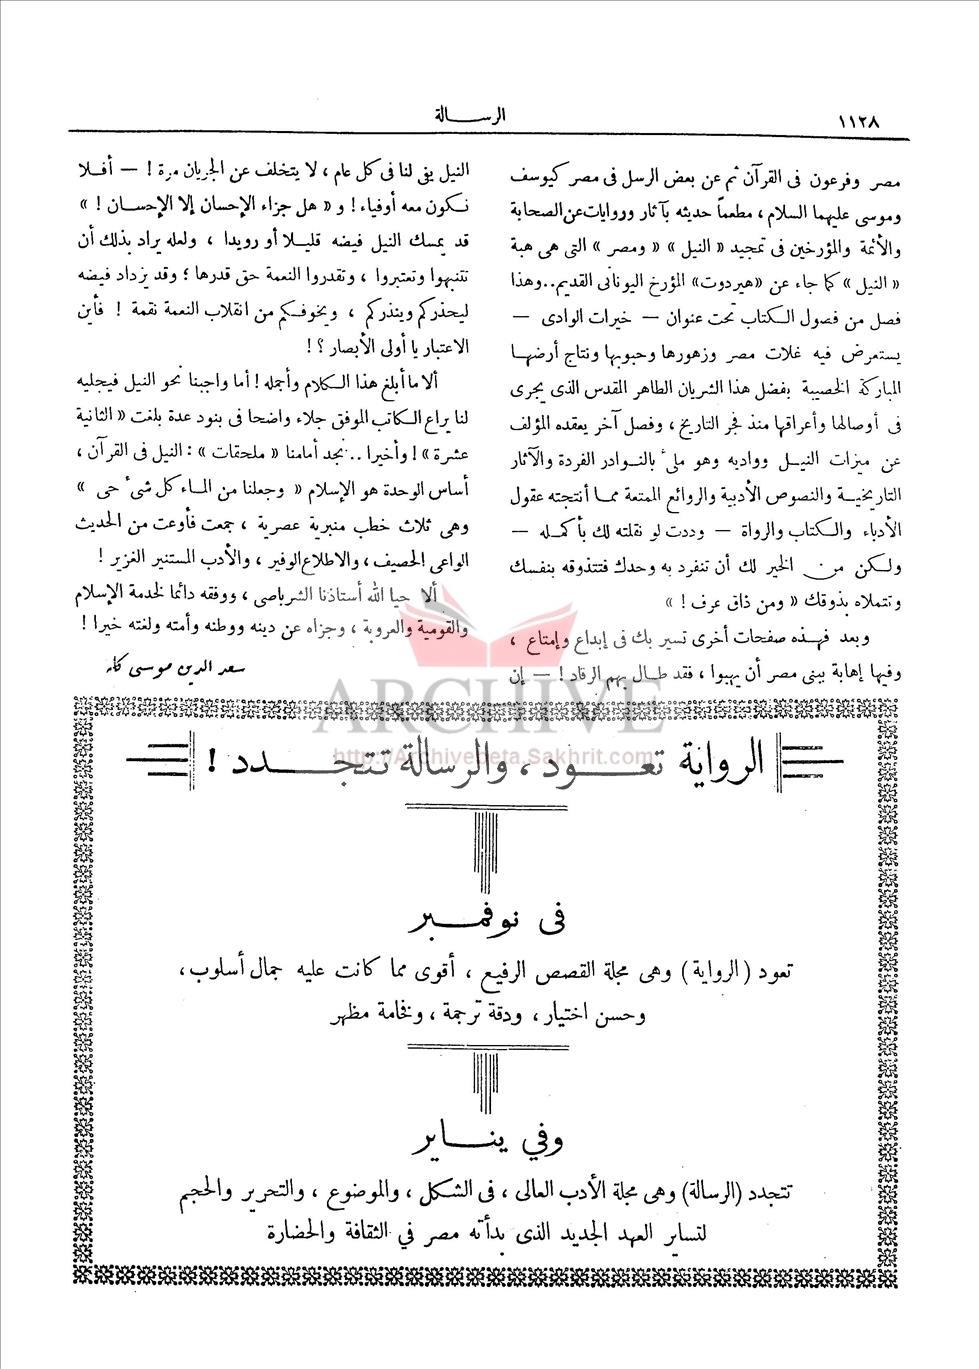 ١١٢٨
الرسالة
مصر وفرعون فى القرآن ثم عن بعض الرسل فى مصر كيوسف
وموسى عليهما السلام ، مطعماً حديثه بآثار وروايات عن الصحابة
والأئمة والمؤرخين فى تمجيد « النيل » « ومصر » التى هى هبة
« النيل » كما جاء عن «هيردوت» المؤرخ اليونانى القديم..وهذا
فصل من فصول الكتاب تحت عنوان — خيرات الوادى —
يستعرض فيه غلات مصر وزهورها وحبوبها ونتاج أرضها
المباركة الخصيبة بفضل هذا الشريان الطاهر المقدس الذى يجرى
فى أوصالها وأعراقها منذ فجر التاريخ ، وفصل آخر يعقده المؤلف
عن ميزات النيل وواديه وهو ملىء بالنوادر الفردة والآثار
التاريخية والنصوص الأدبية والروائع الممتعة مما أنتجته عقول
الأدباء والكتاب والرواة — وددت لو نقلته لك بأكمله —
ولكن من الخير لك أن تنفرد به وحدك فتتذوقه بنفسك
وتتملاه بذوقك « ومن ذاق عرف ! »
وبعد فهذه صفحات أخرى تسير بك فى إبداع وإمتاع ،
وفيها إهابة ببنى مصر أن يهبوا ، فقد طال بهم الرقاد ! — إن
النيل يفى لنا فى كل عام ، لا يتخلف عن الجريان مرة ! — أفلا
نكون معه أوفياء ! و « هل جزاء الإحسان إلا الإحسان ! »
قد يمسك النيل فيضه قليلا أو رويدا ، ولعله يراد بذلك أن
تتنبهوا وتعتبروا ، وتقدروا النعمة حق قدرها ؛ وقد يزداد فيضه
ليحذركم وينذركم ، ويخوفكم من انقلاب النعمة نقمة ! فأين
الاعتبار يا أولى الأبصار ؟ !
ألا ما أبلغ هذا الكلام وأجمله ! أما واجبنا نحو النيل فيجليه
لنا يراع الكاتب الموفق جلاء واضحا فى بنود عدة بلغت « الثانية
عشرة » ! وأخيرا .. نجد أمامنا « ملحقات » : النيل فى القرآن ،
أساس الوحدة هو الإسلام « وجعلنا من الماء كل شىء حى »
وهى ثلاث خطب منبرية عصرية ، جمعت فأوعت من الحديث
الواعى الحصيف ، والاطلاع الوفير ، والأدب المستنير الغزير !
ألا حيا الله أستاذنا الشرباصى ، ووفقه دائما لخدمة الإسلام
والقومية والعروبة ، وجزاه عن دينه ووطنه وأمته ولغته خيرا !
سعد الدين موسى كله
ARCHIVE
http://Archivebeta.Sakhrit.com
الرواية تعود ، والرسالة تتجدد !
فى نوفمبر
تعود ( الرواية ) وهى مجلة القصص الرفيع ، أقوى مما كانت عليه جمال أسلوب ،
وحسن اختيار ، ودقة ترجمة ، وفخامة مظهر
وفي يناير
تتجدد (الرسالة) وهى مجلة الأدب العالى ، فى الشكل ، والموضوع ، والتحرير والحجم
لتساير العهد الجديد الذى بدأته مصر في الثقافة والحضارة